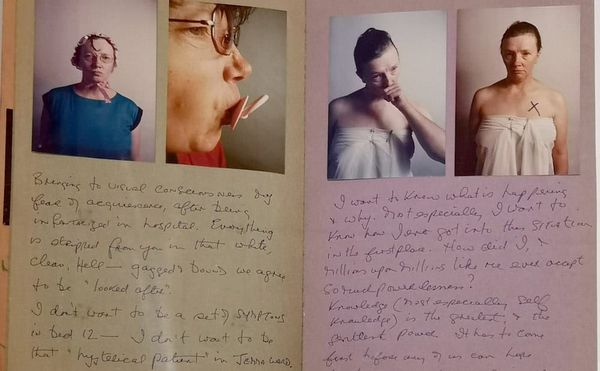 Bringing to visual consciousness my
fear of acquiescence, after being
infantalized in hospital. Everything
is stripped from you in that white,
clean, Hell — gagged & bound we agree
to be "looked after".
I don't want to be a set of symptoms
in bed 12 — I don't want to be
that "hysterical patient" in JENNA WARD.
I want to know what is happening
& why. Most especially I want to
know how I ever got into this situation
in the first place. How did I, &
millions upon millions like me ever accept
so much powerlessness?
Knowledge (most especially self
knowledge) is the greatest & the
gentlest power. It has to come
first before any of us can hope